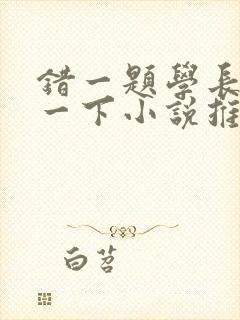 錯一題學長
一下小說推
白茗